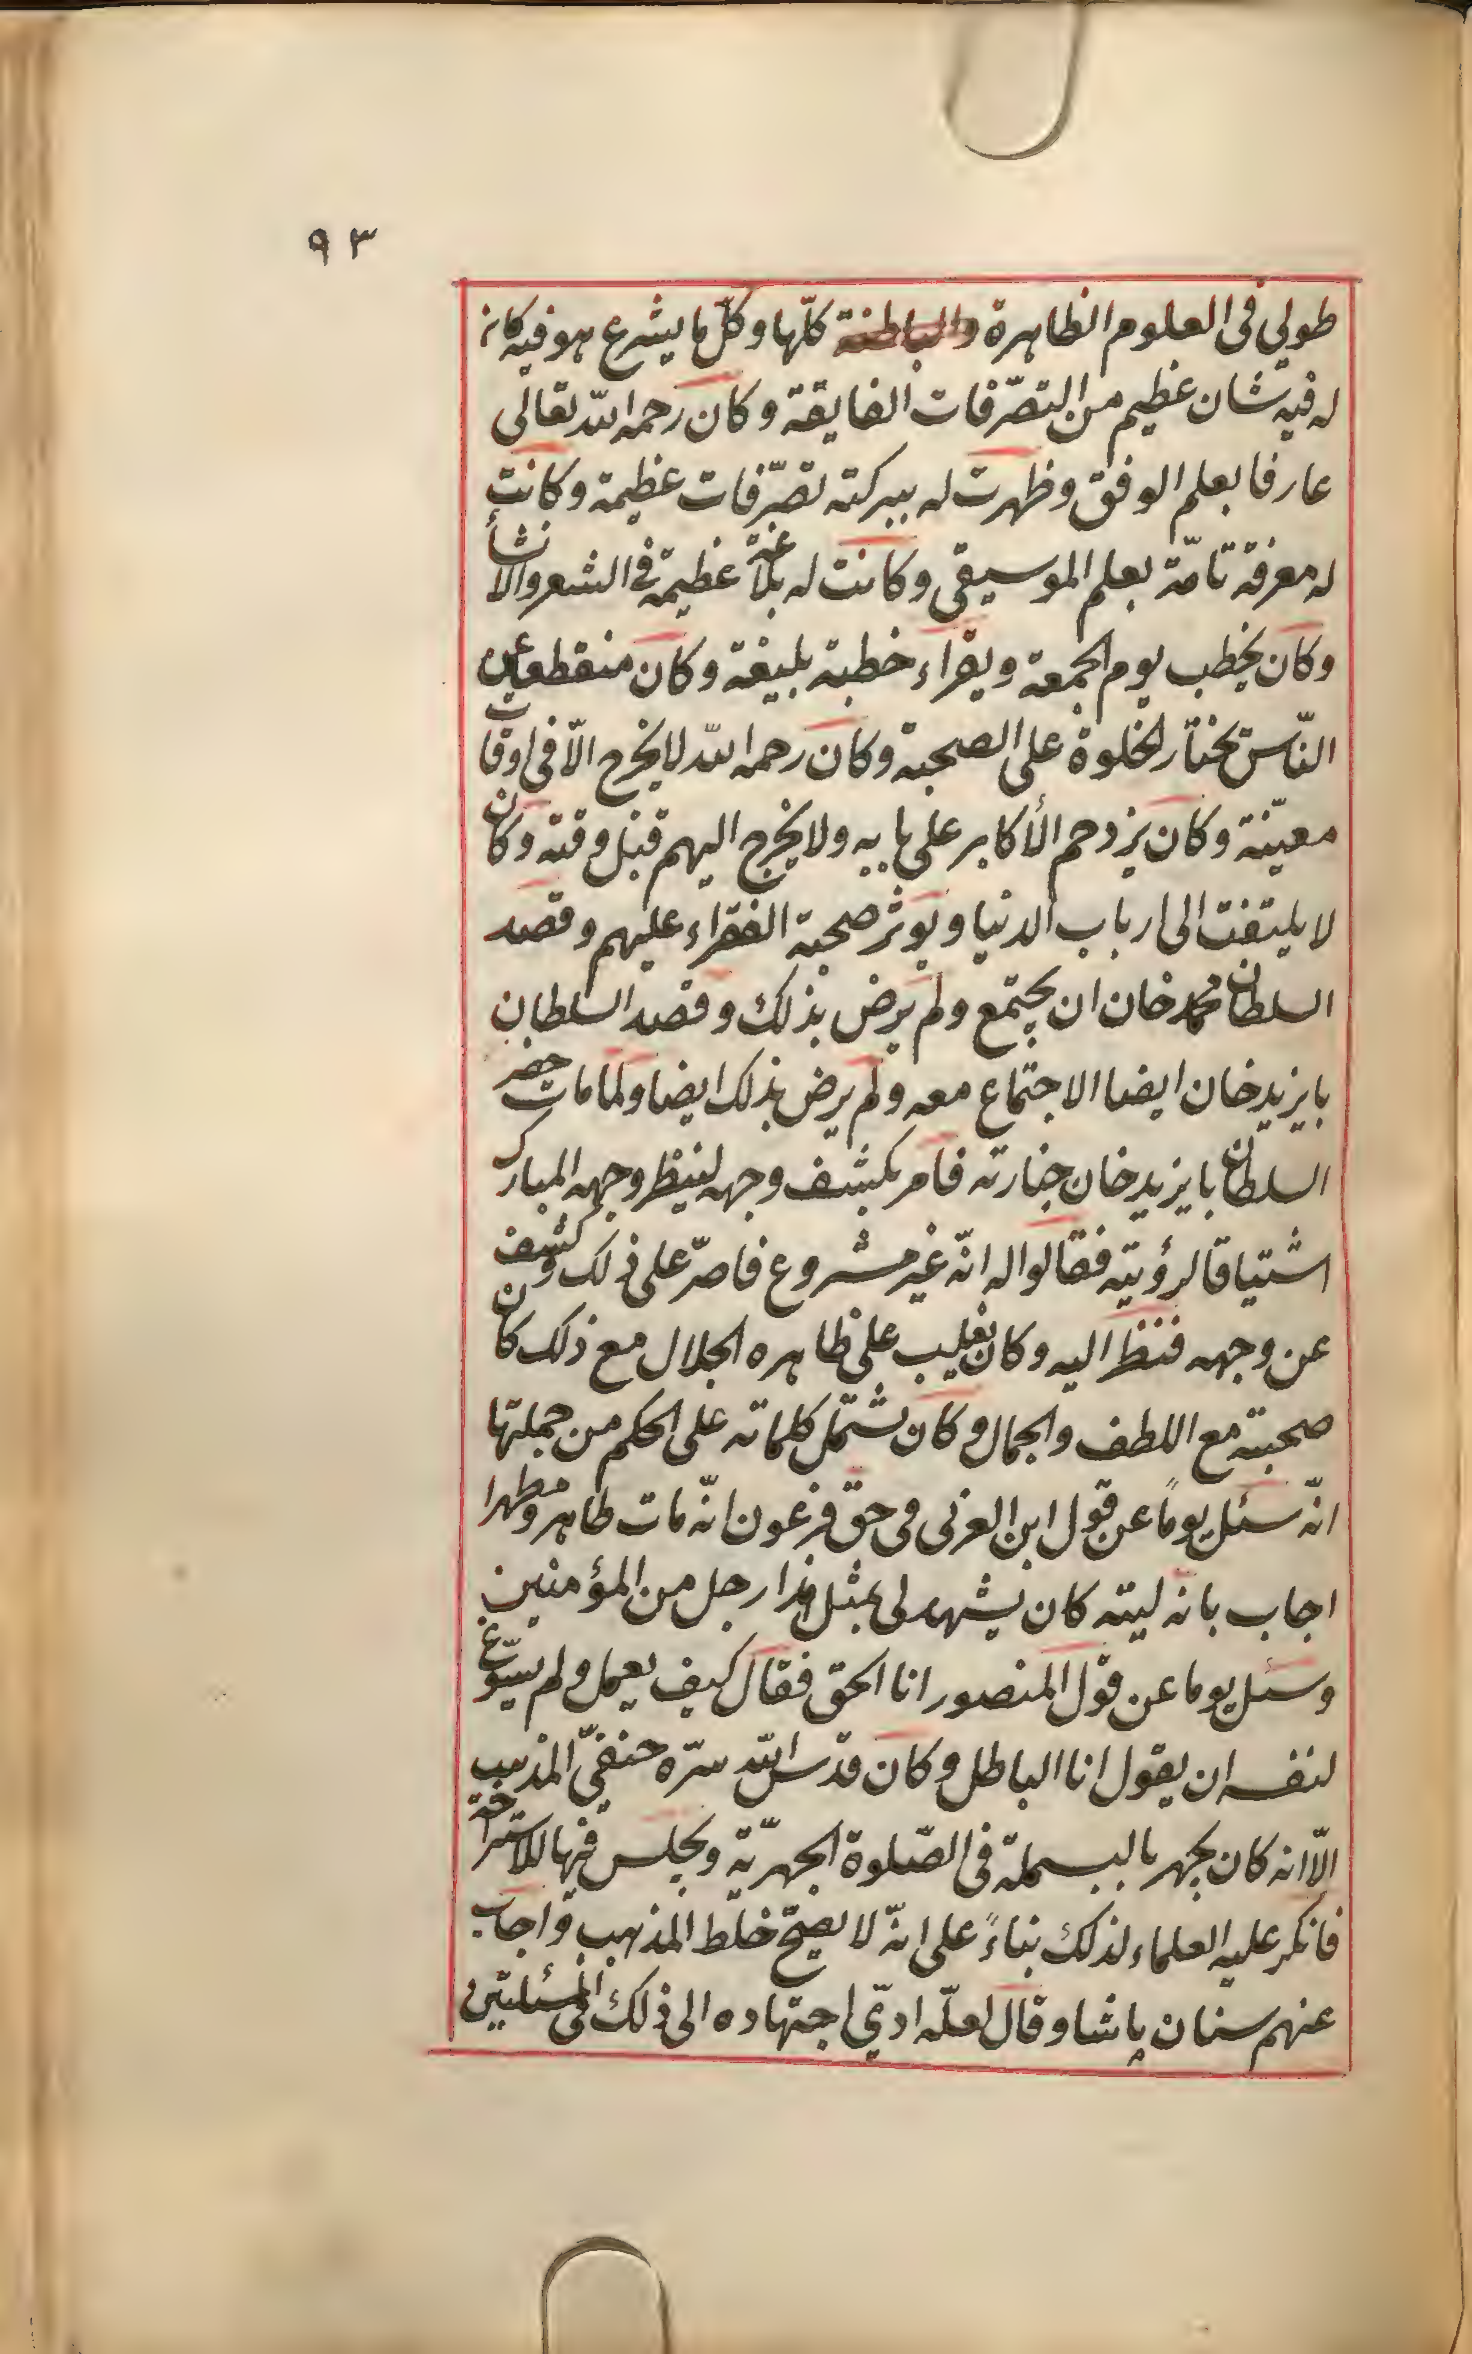 ٩٣
طولى فى العلوم الظاهرة والباطنة كلّها وكلّ ما يشرع هو فيه كان
له فيه شان عظيم من التصرّفات الفايقة وكان رحمه اللّه تعالى
عارفا بعلم الوفق وظهرت له ببركته تصرّفات عظيمة وكانت
له معرفة تامّة بعلم الموسيقى وكانت له بلاغة عظيمة فى الشعر والانشأ
وكان يخطب يوم الجمعة ويقراء خطبة بليغة وكان منقطعا عن
النّاس يختار الخلوة على الصحبة وكان رحمه اللّه لا يخرج الّا فى اوقات
معيّنة وكان يزدحم الأكابر على بابه ولا يخرج اليهم قبل وقته وكان
لا يلتفت الى ارباب الدنيا ويوثر صحبة الفقراء عليهم وقصد
السلطان محمد خان ان يجتمع ولم يرض بذلك وقصد السلطان
بايزيد خان ايضا الاجتماع معه ولم يرض بذلك ايضا ولما مات حضر
السلطان بايزيد خان جنازته فامر بكشف وجهه لينظر وجهه المبارك
اشتياقا لرؤيته فقالوا له انّه غير مشروع فاصرّ على ذلك وكشف
عن وجهه فنظر اليه وكان يغلب على ظاهره الجلال مع ذلك كان
صحبته مع اللطف والجمال وكان تشتمل كلماته على الحكم من جملتها
انّه سئل يوماً عن قول ابن العربى فى حقّ فرعون انّه مات طاهرا ومطهرا
اجاب بانه ليته كان يشهد لى بمثل هذا رجل من المؤمنين
وسئل يوما عن قول المنصور انا الحق فقال كيف يعمل ولم يسوّغ
لنفسه ان يقول انا الباطل وكان قدّس اللّه سرّه حنفىّ المذهب
الّا انه كان يجهر بالبسملة فى الصّلوة الجهريّة ويجلس فيها للاستراحة
فانكر عليه العلماء لذلك بناءً على انّه لا يصحّ خلط المذهب واجاب
عنهم سنان پاشا وقال لعلّه ادّى اجتهاده الى ذلك فى المسئلتين